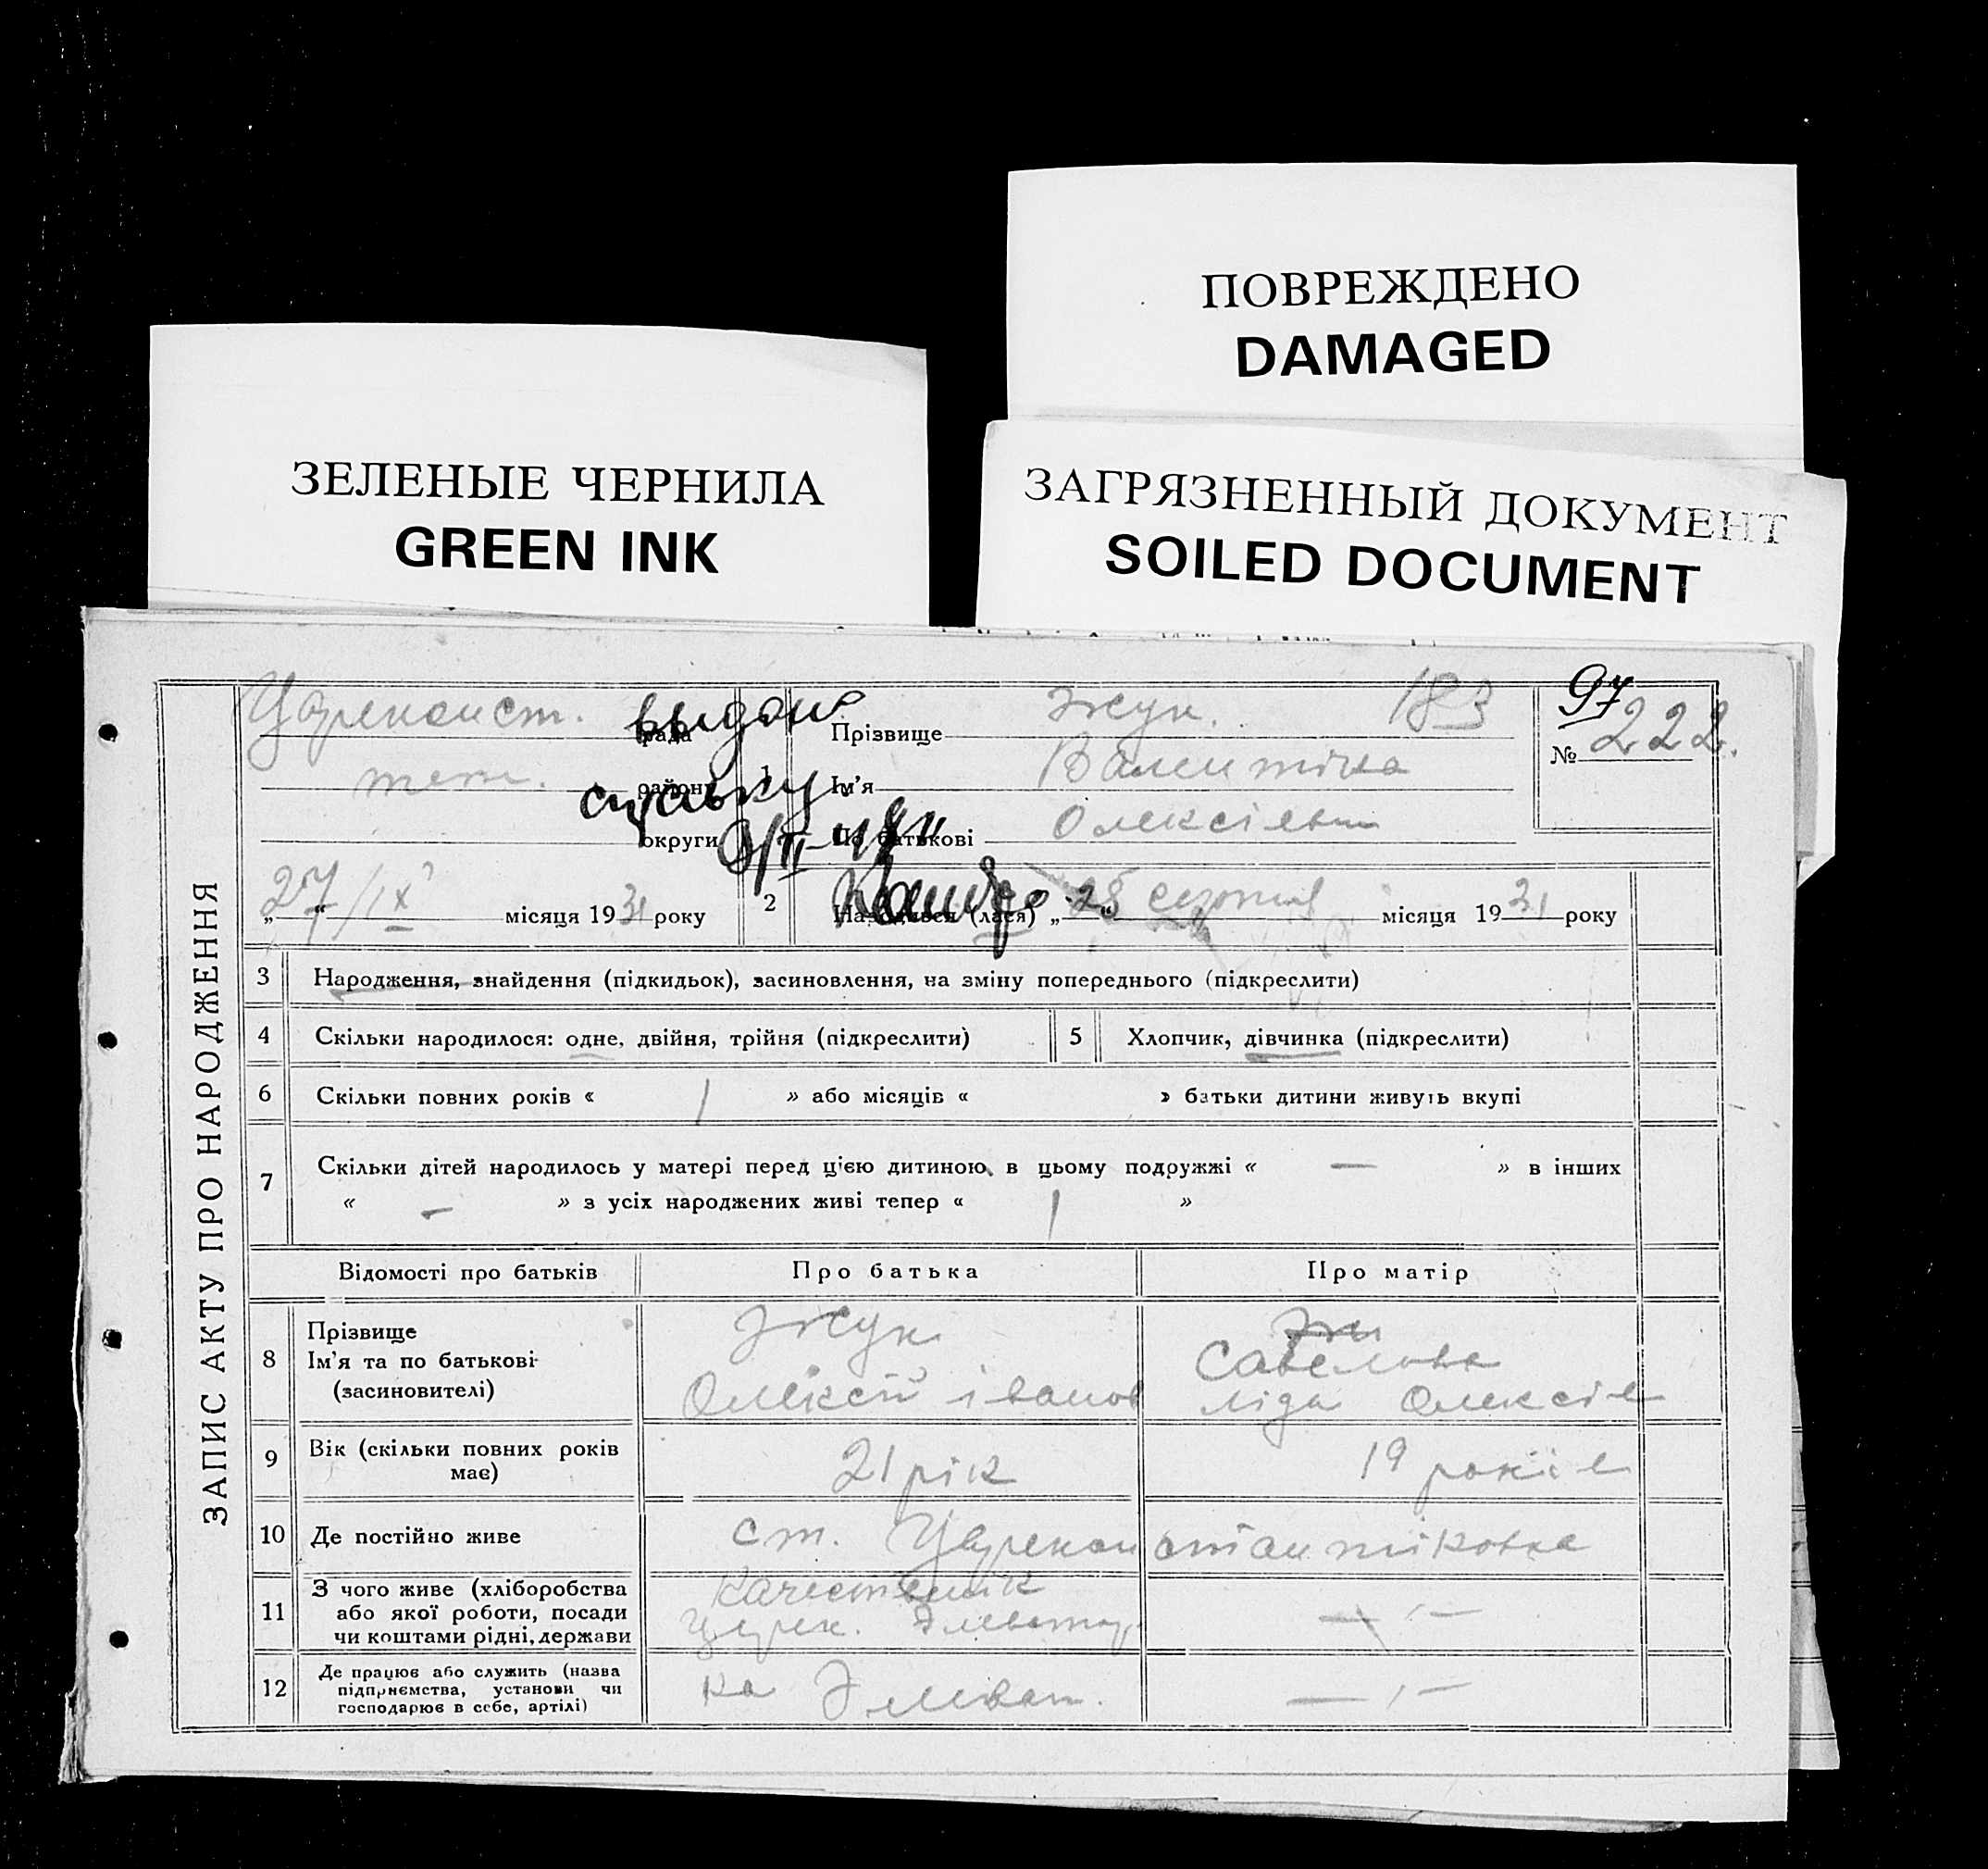 ПОВРЕЖДЕНО
DAMAGED
ЗЕЛЕНЫЕ ЧЕРНИЛА
GREEN INK
ЗАГРЯЗНЕННЫЙ ДОКУМЕНТ
SOILED DOCUMENT
ЗАПИС АКТУ ПРО НАРОДЖЕННЯ
97
183
№ 222.
рада
району
округи
выдано
справку
1 Прізвище Жук.
Ім'я Валентіна
По батькові
27/IX місяця 1931 року
2 Народився (лася) „28 місяця 1931 року
3 Народження, знайдення (підкидьок), засиновлення, на зміну попереднього (підкреслити)
4 Скільки народилося: одне, двійня, трійня (підкреслити)
5 Хлопчик, дівчинка (підкреслити)
6 Скільки повних років « 1 » або місяців « » батьки дитини живуть вкупі
7 Скільки дітей народилось у матері перед цією дитиною, в цьому подружжі « — » в інших
« - » з усіх народжених живі тепер « 1 »
Відомості про батьків Про батька Про матір
8 Прізвище
Ім'я та по батькові
(засиновителі)
Жук
Олексій іванов
Савелова
Ліда Олексів
9 Вік (скільки повних років
має)
21 рік
19 років
10 Де постійно живе
ст.
11 З чого живе (хліборобства
або якої роботи, посади
чи коштами рідні, держави
— ,—
12 Де працює або служить (назва
підприємства, установи чи
господарює в себе, артілі)
на Элеват.
— ,—